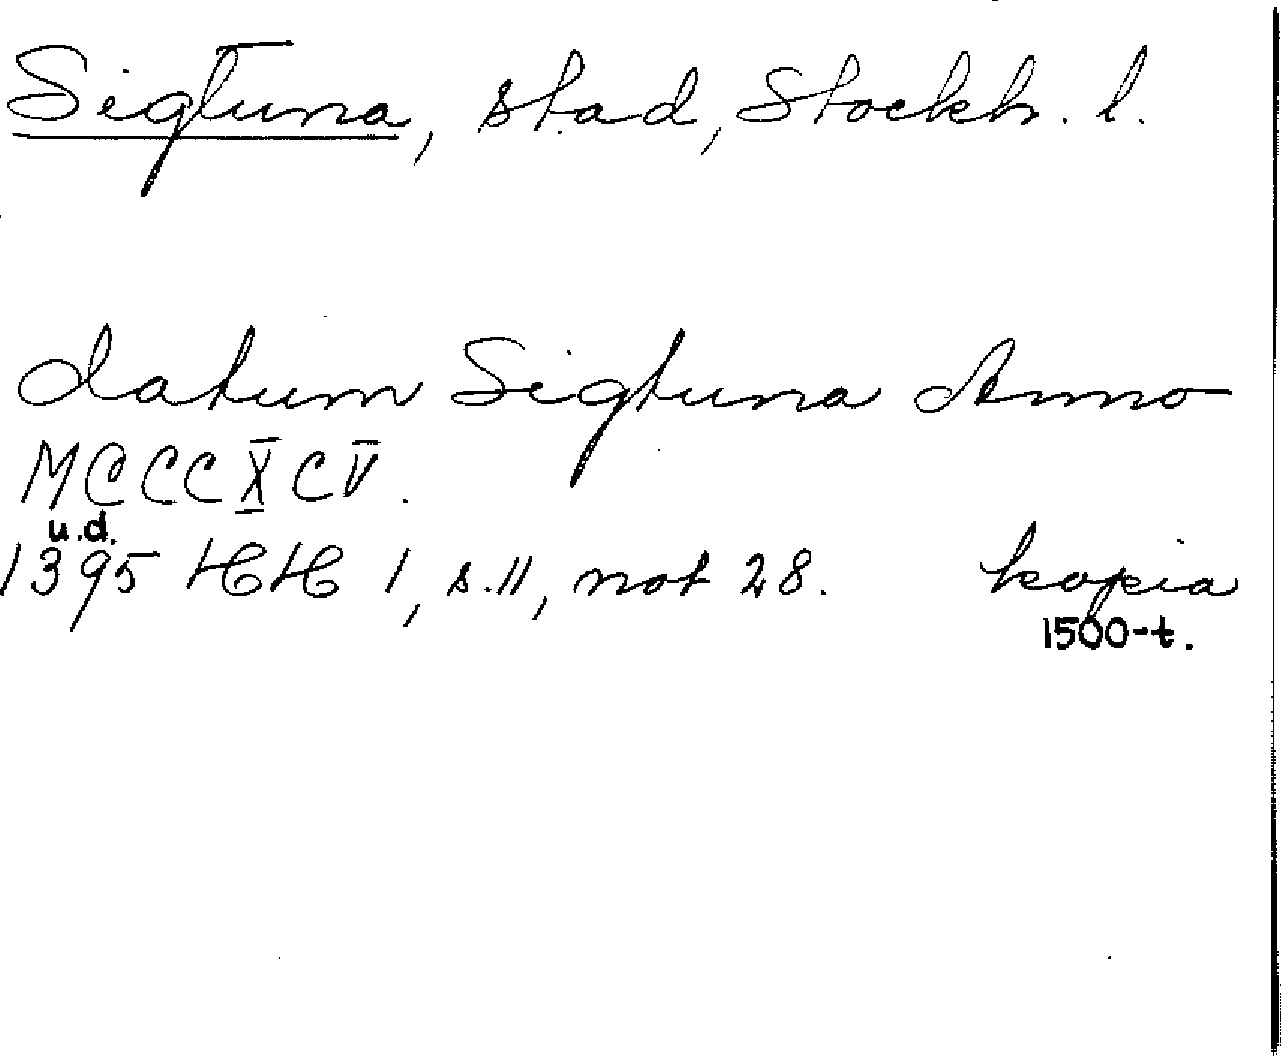 Sigtuna, stad, Stockh. l.
datum Sigtuna Anno
MCCCXCV.
u.d.
1395 HH 1, s.11, not 28. kopia
1500-t.